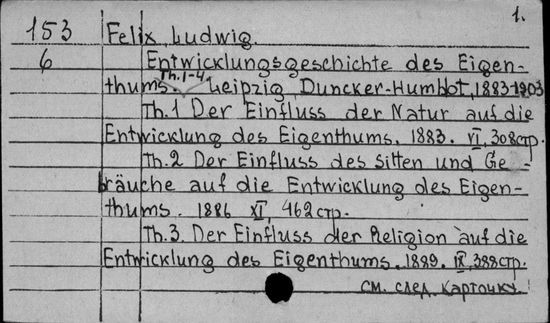 1.
153 Felix, Ludwig.
6 Entwicklungsgeschichte des Eigen-
Th. 1-4.
thums. Leipzig, Duncker-Humblot, 1883-1903
Th. 1 Der Einfluss der Natur auf die
Entwicklung des Eigenthums. 1883. VI, 308 стр.
Th. 2 Der Einfluss des Sitten und Ge-
bräuche auf die Entwicklung des Eigen-
thums. 1886 XI, 462 стр.
Th. 3. Der Einfluss der Religion auf die
Entwicklung des Eigenthums. 1889. IX, 388 стр.
см. след. карточку.